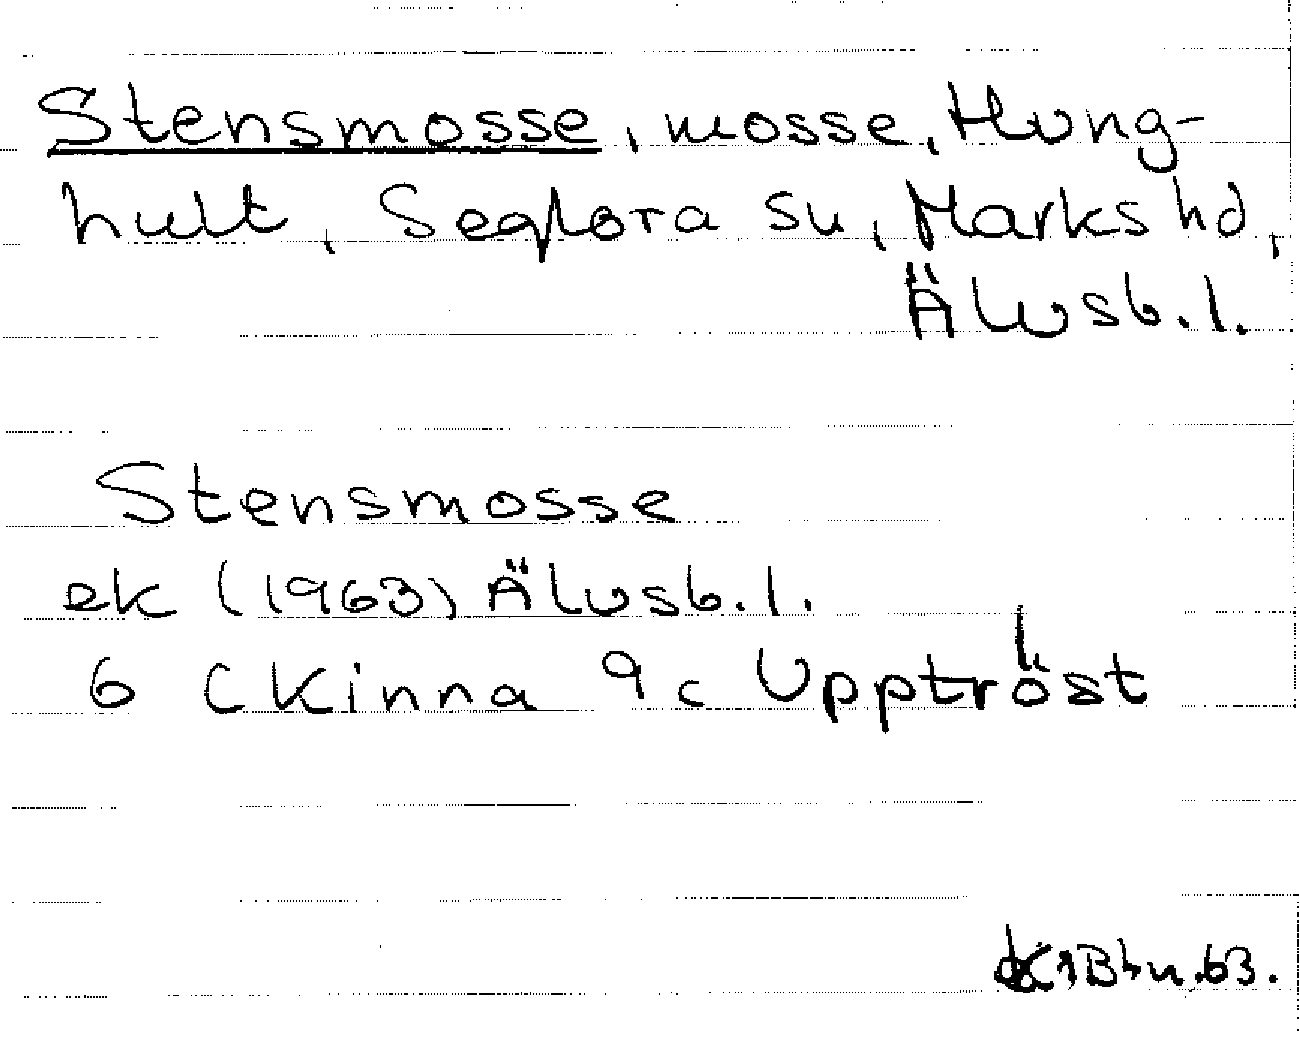 Stensmosse, mosse, Hung-
hult, Seglora sn, Marks hd,
Älvsb. l.
Stensmosse
ek (1963) Älvsb. l.
6 C Kinna 9 c Upptröst